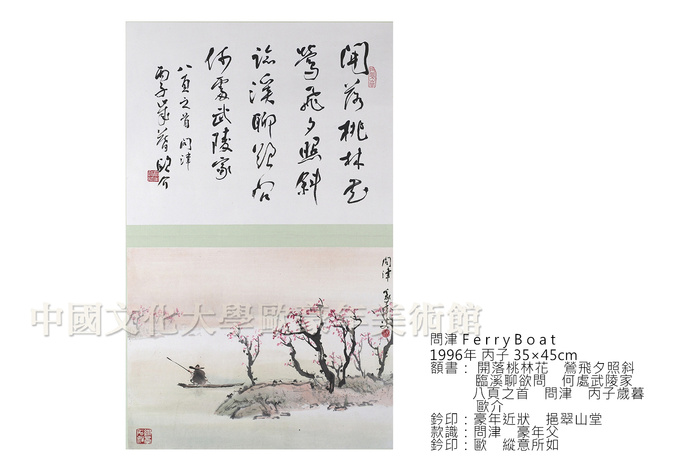 開落桃林花
鶯飛夕照斜
臨溪聊欲問
何處武陵家
八頁之首 問津
丙子歲暮 歐介
問津 豪年父
中國文化大學歐豪年美術館
問津 Ferry Boat
1996年 丙子 35×45cm
額書： 開落桃林花 鶯飛夕照斜
臨溪聊欲問 何處武陵家
八頁之首 問津 丙子歲暮
歐介
鈐印：豪年近狀 挹翠山堂
款識：問津 豪年父
鈐印：歐 縱意所如